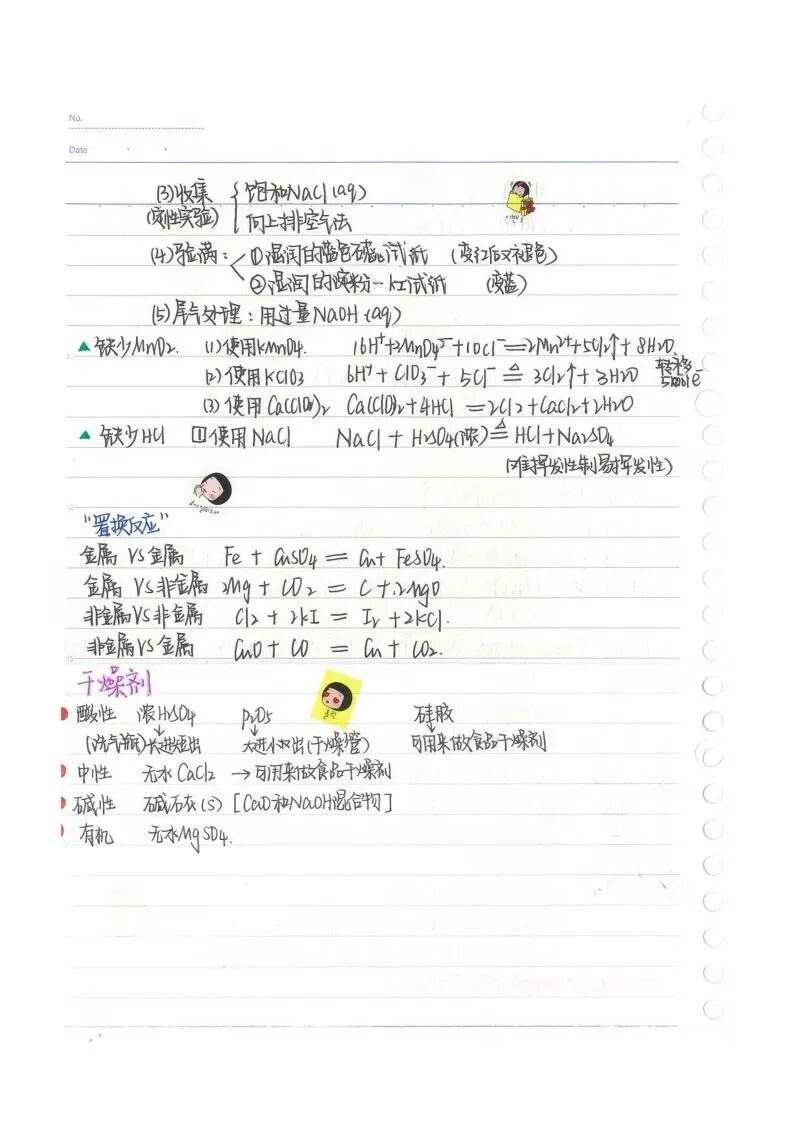 No.
Date
(3)收集 { 饱和NaCl (aq)
(定性实验) 向上排空气法
(4)验满: ①湿润的蓝色石蕊试纸 (变红后又褪色)
②湿润的淀粉-KI试纸 (变蓝)
(5)尾气处理:用过量NaOH (aq)
▲ 缺少MnO2. (1)使用KMnO4. 16H⁺+2MnO4⁻+10Cl⁻=2Mn²⁺+5Cl2↑+8H2O
(2)使用KClO3 6H⁺+ClO3⁻+5Cl⁻ ≜ 3Cl2↑+3H2O 转移
5mol e⁻
(3)使用Ca(ClO)2 Ca(ClO)2+4HCl=2Cl2+CaCl2+2H2O
▲ 缺少HCl ①使用NaCl NaCl+H2SO4(浓) ≜ HCl+Na2SO4
(难挥发性制易挥发性)
"置换反应"
金属 VS 金属 Fe + CuSO4 = Cu + FeSO4.
金属 VS 非金属 2Mg + CO2 = C + 2MgO
非金属 VS 非金属 Cl2 + 2KI = I2 + 2KCl.
非金属 VS 金属 CuO + CO = Cu + CO2.
干燥剂
酸性 浓H2SO4 P2O5 硅胶
(洗气瓶)长进短出 大进小出(干燥管) 可用来做食品干燥剂
中性 无水CaCl2 → 可用来做食品干燥剂
碱性 碱石灰(s) [CaO和NaOH混合物]
有机 无水MgSO4.